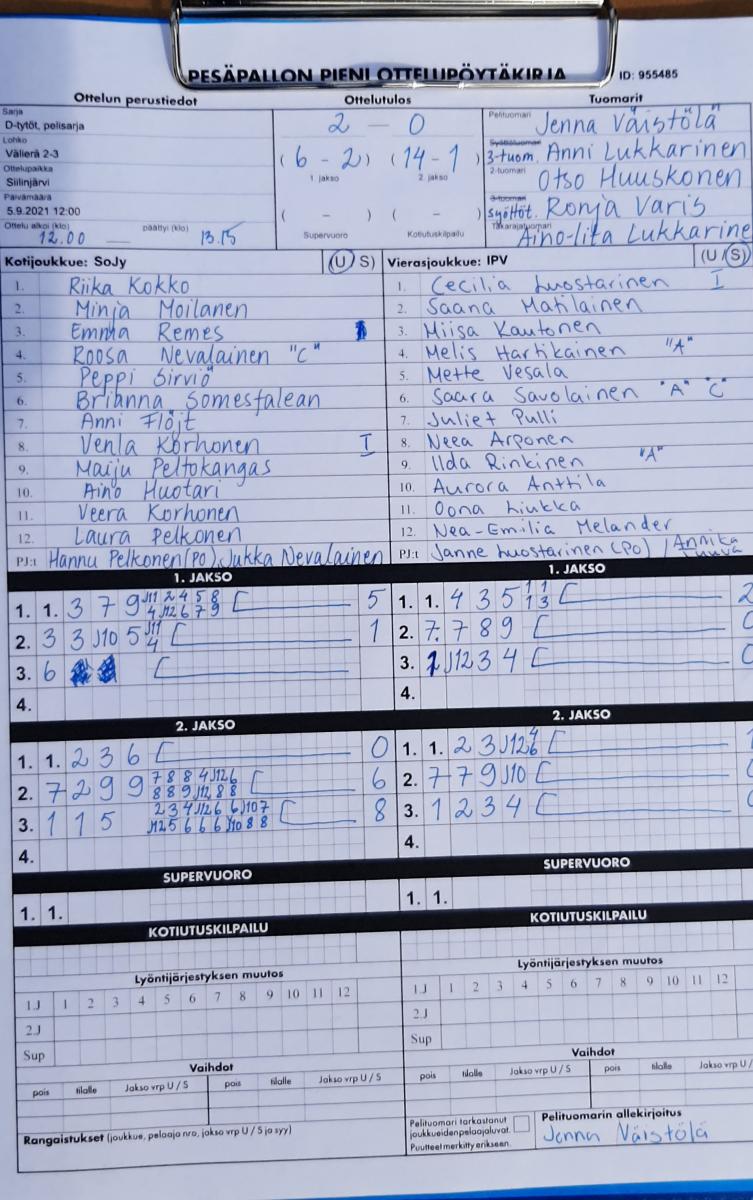 PESÄPALLON PIENI OTTELUPÖYTÄKIRJA ID: 955485
Ottelun perustiedot Ottelutulos Tuomarit
Sarja
D-tytöt, pelisarja
Lohko
Välierä 2-3
Ottelupaikka
Siilinjärvi
Päivämäärä
5.9.2021 12:00
Ottelu alkoi (klo) päättyi (klo)
12.00 13.15
2 - 0
(6 - 2) (14 - 1)
1. jakso 2. jakso
( - ) ( - )
Supervuoro Kotiutuskilpailu
Pelituomari Jenna Väistölä
3-tuom. Anni Lukkarinen
2-tuomari Otso Huuskonen
syöttöt. Ronja Varis
Takarajatuomari Aino-Iita Lukkarine
Kotijoukkue: SoJy (U S)
1. Riika Kokko
2. Minja Moilanen
3. Emma Remes
4. Roosa Nevalainen "C"
5. Peppi Sirviö
6. Brianna Somesfalean
7. Anni Flöjt
8. Venla Korhonen I
9. Maiju Peltokangas
10. Aino Huotari
11. Veera Korhonen
12. Laura Pelkonen
PJ:t Hannu Pelkonen (PO), Jukka Nevalainen
Vierasjoukkue: IPV (U S)
1. Cecilia Luostarinen I
2. Saana Matilainen
3. Miisa Kautonen
4. Melis Hartikainen "A"
5. Mette Vesala
6. Saara Savolainen "A" "C"
7. Juliet Pulli
8. Neea Arponen
9. Ilda Rinkinen "A"
10. Aurora Anttila
11. Oona Liukka
12. Nea-Emilia Melander
PJ:t Janne Luostarinen (PO) / Annika
1. JAKSO
1. 1. 3 7 9 J11 2 4 5 8 5
4 J12 6 7 9
2. 3 3 J10 5 J11 1
4
3. 6
4.
1. JAKSO
1. 1. 4 3 5 1 1 2
1 3
2. 7. 7 8 9
3. 1 J12 3 4
4.
2. JAKSO
1. 1. 2 3 6 0
2. 7 2 9 9 7 8 8 4 J12 6 6
8 8 9 J12 8 8
3. 1 1 5 2 3 4 J12 6 6 J10 7 8
J12 5 6 6 6 J10 8 8
4.
2. JAKSO
1. 1. 2 3 J12 4
6
2. 7 7 9 J10
3. 1 2 3 4
4.
SUPERVUORO
1. 1.
SUPERVUORO
1. 1.
KOTIUTUSKILPAILU
KOTIUTUSKILPAILU
Lyöntijärjestyksen muutos
1.J 1 2 3 4 5 6 7 8 9 10 11 12
2.J
Sup
Lyöntijärjestyksen muutos
1.J 1 2 3 4 5 6 7 8 9 10 11 12
2.J
Sup
Vaihdot
pois tilalle Jakso vrp U / S pois tilalle Jakso vrp U / S
Vaihdot
pois tilalle Jakso vrp U / S pois tilalle Jakso vrp U / S
Rangaistukset (joukkue, pelaaja nro, jakso vrp U / S ja syy)
Pelituomari tarkastanut
joukkueiden pelaajaluvat.
Puutteet merkitty erikseen.
Pelituomarin allekirjoitus
Jenna Väistölä